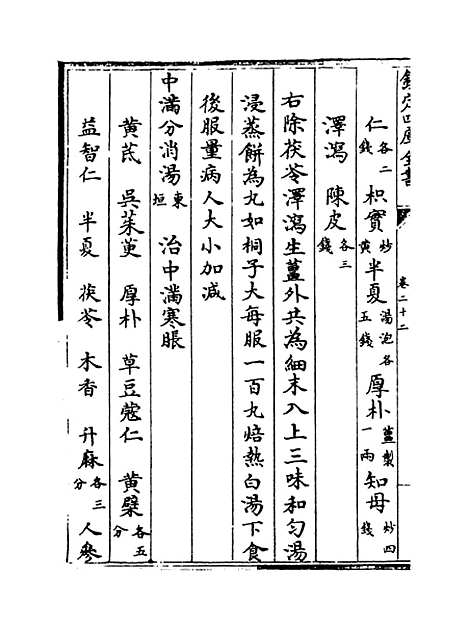 欽定四庫全書
卷二十二
仁各二錢 枳實炒黄 半夏湯泡各五錢 厚朴薑製一兩 知母炒四錢
澤瀉 陳皮各三錢
右除茯苓澤瀉生薑外共為細末入上三味和匀湯
浸蒸餅為丸如桐子大每服一百丸焙熱白湯下食
後服量病人大小加减
中滿分消湯東垣 治中滿寒脹
黄芪 吳茱萸 厚朴 草豆蔻仁 黄檗各五分
益智仁 半夏 茯苓 木香 升麻各三分 人參